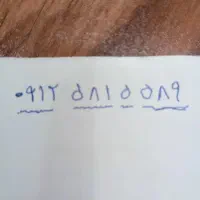 ۰۹۱۲ ۵۸۱ ۵ ۵۸۹